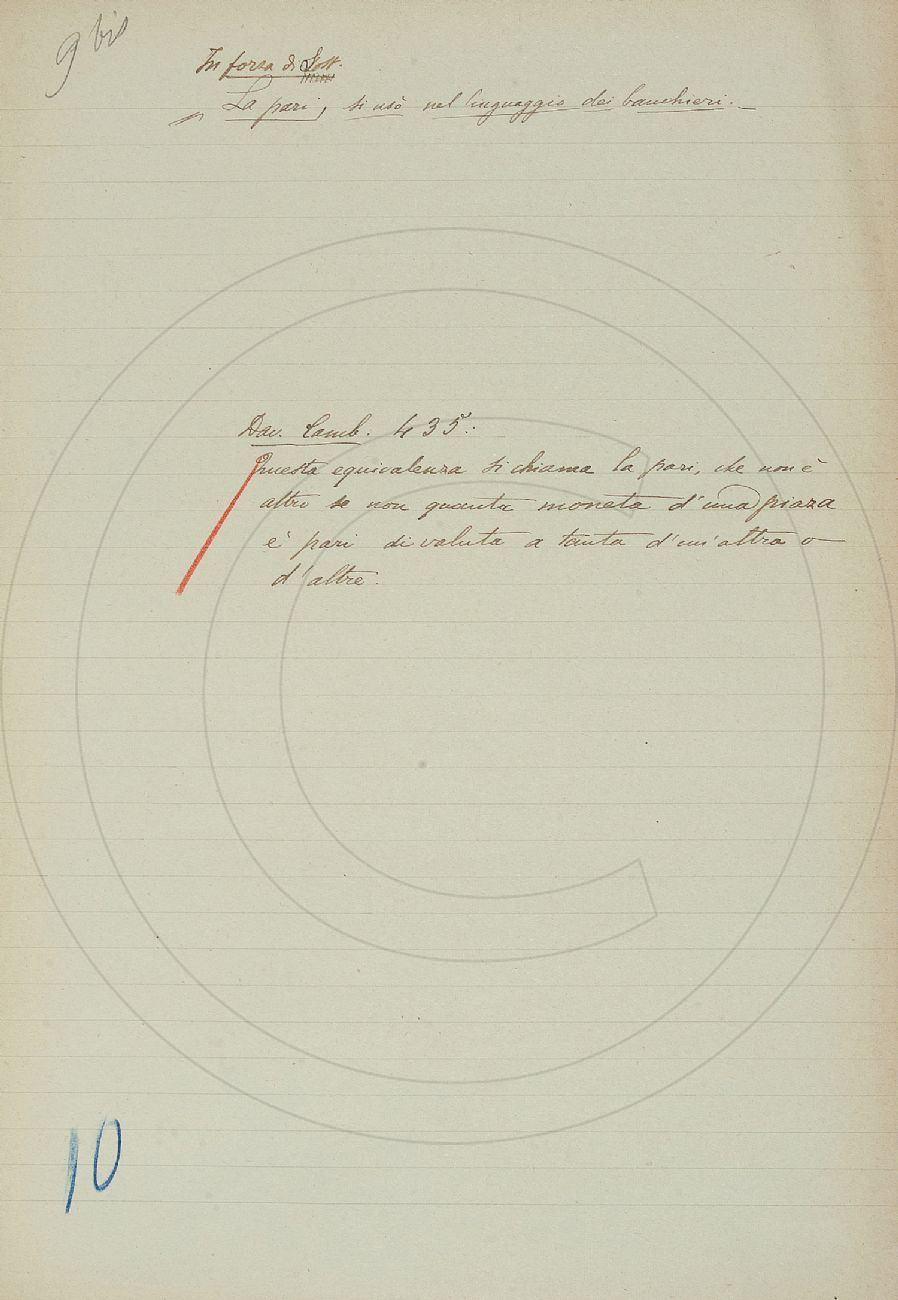 9 bis
In forza di Sost.
La pari, si usò nel linguaggio dei banchieri. _
Dav. Camb. 435:
Questa equivalenza si chiama la pari, che non è
altro se non quanta moneta d'una piaza
è pari di valuta a tanta d'un'altra o
d'altre.
10